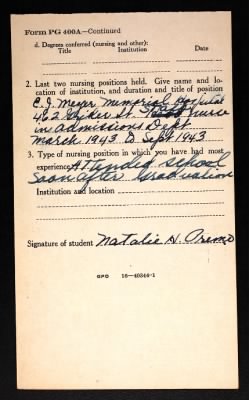 Form PG 400A—Continued
d. Degrees conferred (nursing and other):
Title Institution Date
2. Last two nursing positions held. Give name and lo-
cation of institution, and duration and title of position
E. J. Meyer Memorial Hospital
462 Grider St. nurse
in admissions Dept
March 1943 to Sept 1943
3. Type of nursing position in which you have had most
experience Attended school
soon after graduation
Institution and location
Signature of student Natalie H. Oremo
GPO 16—40344-1